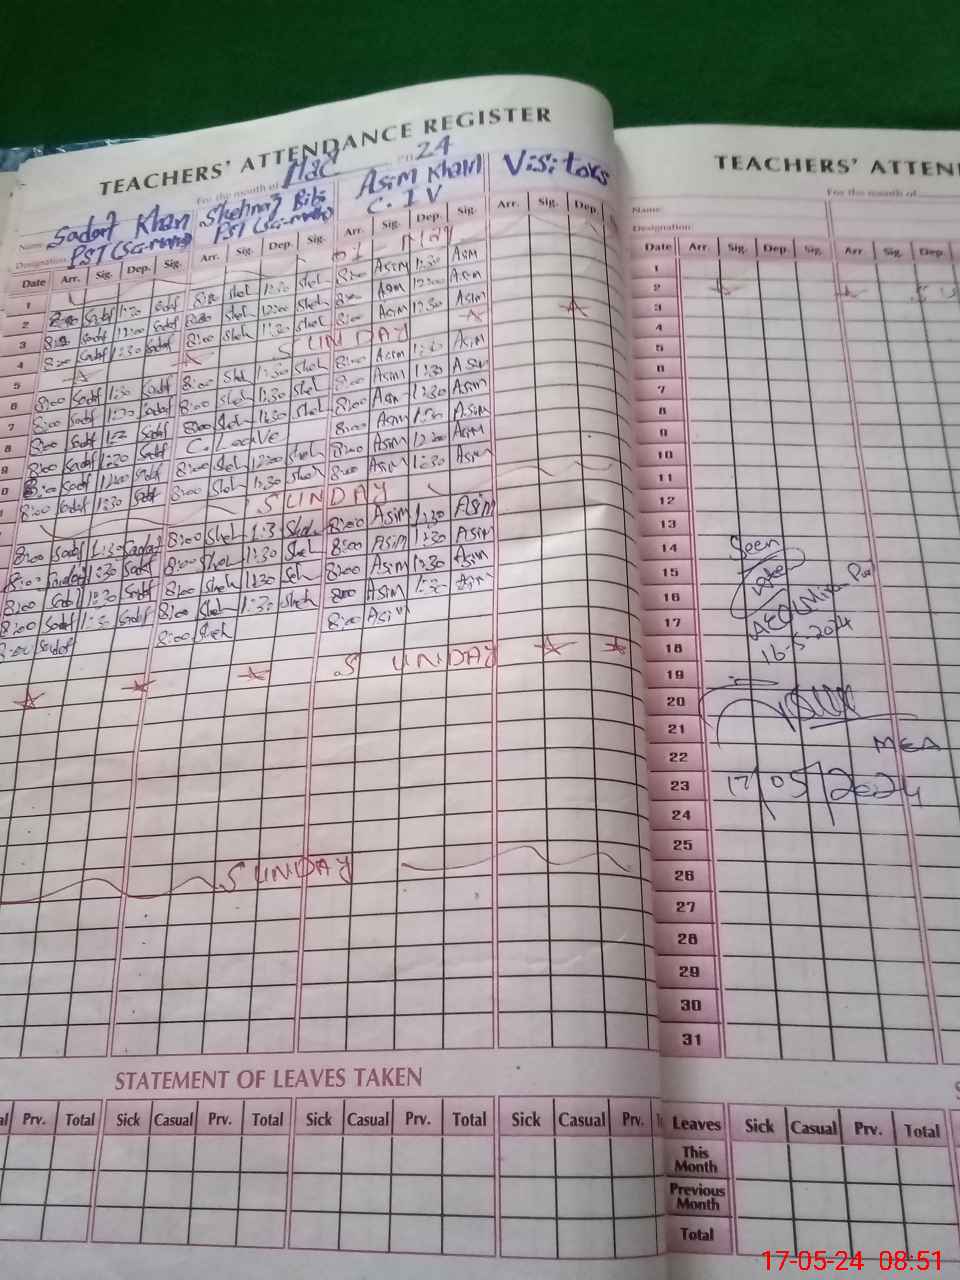 TEACHERS' ATTENDANCE REGISTER
For the month of 24
Name Sadaf Khan Shehnaz Bibi Asim Khan Visitors
Designation PST C. IV
Date Arr. Sig. Dep. Sig. Arr. Sig. Dep. Sig. Arr. Sig. Dep. Sig. Arr. Sig. Dep.
1 May
1
2 8:00 Sadaf 8:00 Sheh 1:30 Sheh 8:00 Asim 1:30 Asim
3 8:00 Sadaf 12:00 Sadaf 8:00 Sheh 12:00 Sheh 8:00 Asim 12:00 Asim
4 8:00 Sadaf 1:30 Sadaf 8:00 Sheh 1:30 Sheh 8:00 Asim 12:30 Asim
5 SUNDAY
6 8:00 Sadaf 1:30 Sadaf 8:00 Sheh 1:30 Sheh 8:00 Asim 1:30 Asim
7 8:00 Sadaf 1:30 Sadaf 8:00 Sheh 1:30 Sheh 8:00 Asim 1:30 Asim
8 8:00 Sadaf Sadaf 8:00 Sheh 1:30 Sheh 8:00 Asim 1:30 Asim
9 8:00 Sadaf 1:30 Sadaf C. Leave 8:00 Asim 1:30 Asim
8:00 Sadaf 12:00 Sadaf 8:00 Sheh 12:00 Sheh 8:00 Asim 12:00 Asim
8:00 Sadaf 1:30 Sadaf 8:00 Sheh 1:30 Sheh 8:00 Asim 1:30 Asim
SUNDAY
8:00 Sadaf 1:30 Sadaf 8:00 Sheh 1:3 Sheh 8:00 Asim 1:30 Asim
8:00 Sadaf 1:30 Sadaf 8:00 Sheh 1:30 Sheh 8:00 Asim 1:30 Asim
8:00 Sadaf 1:30 Sadaf 8:00 Sheh 1:30 Sheh 8:00 Asim 1:30 Asim
8:00 Sadaf 1:30 Sadaf 8:00 Sheh 1:30 Sheh 8:00 Asim 1:30 Asim
8:00 Sadaf 8:00 Sheh 8:00 Asim
SUNDAY
SUNDAY
STATEMENT OF LEAVES TAKEN
Prv. Total Sick Casual Prv. Total Sick Casual Prv. Total Sick Casual Prv.
TEACHERS' ATTEN
For the month of
Name:
Designation:
Date Arr. Sig. Dep. Sig. Arr. Sig. Dep.
1
2
3
4
5
6
7
8
9
10
11
12
13
14 Seen
15
16
17
18 16-5-2024
19
20
21
22 MEA
23 17/05/2024
24
25
26
27
28
29
30
31
Leaves Sick Casual Prv. Total
This
Month
Previous
Month
Total
17-05-24 08:51